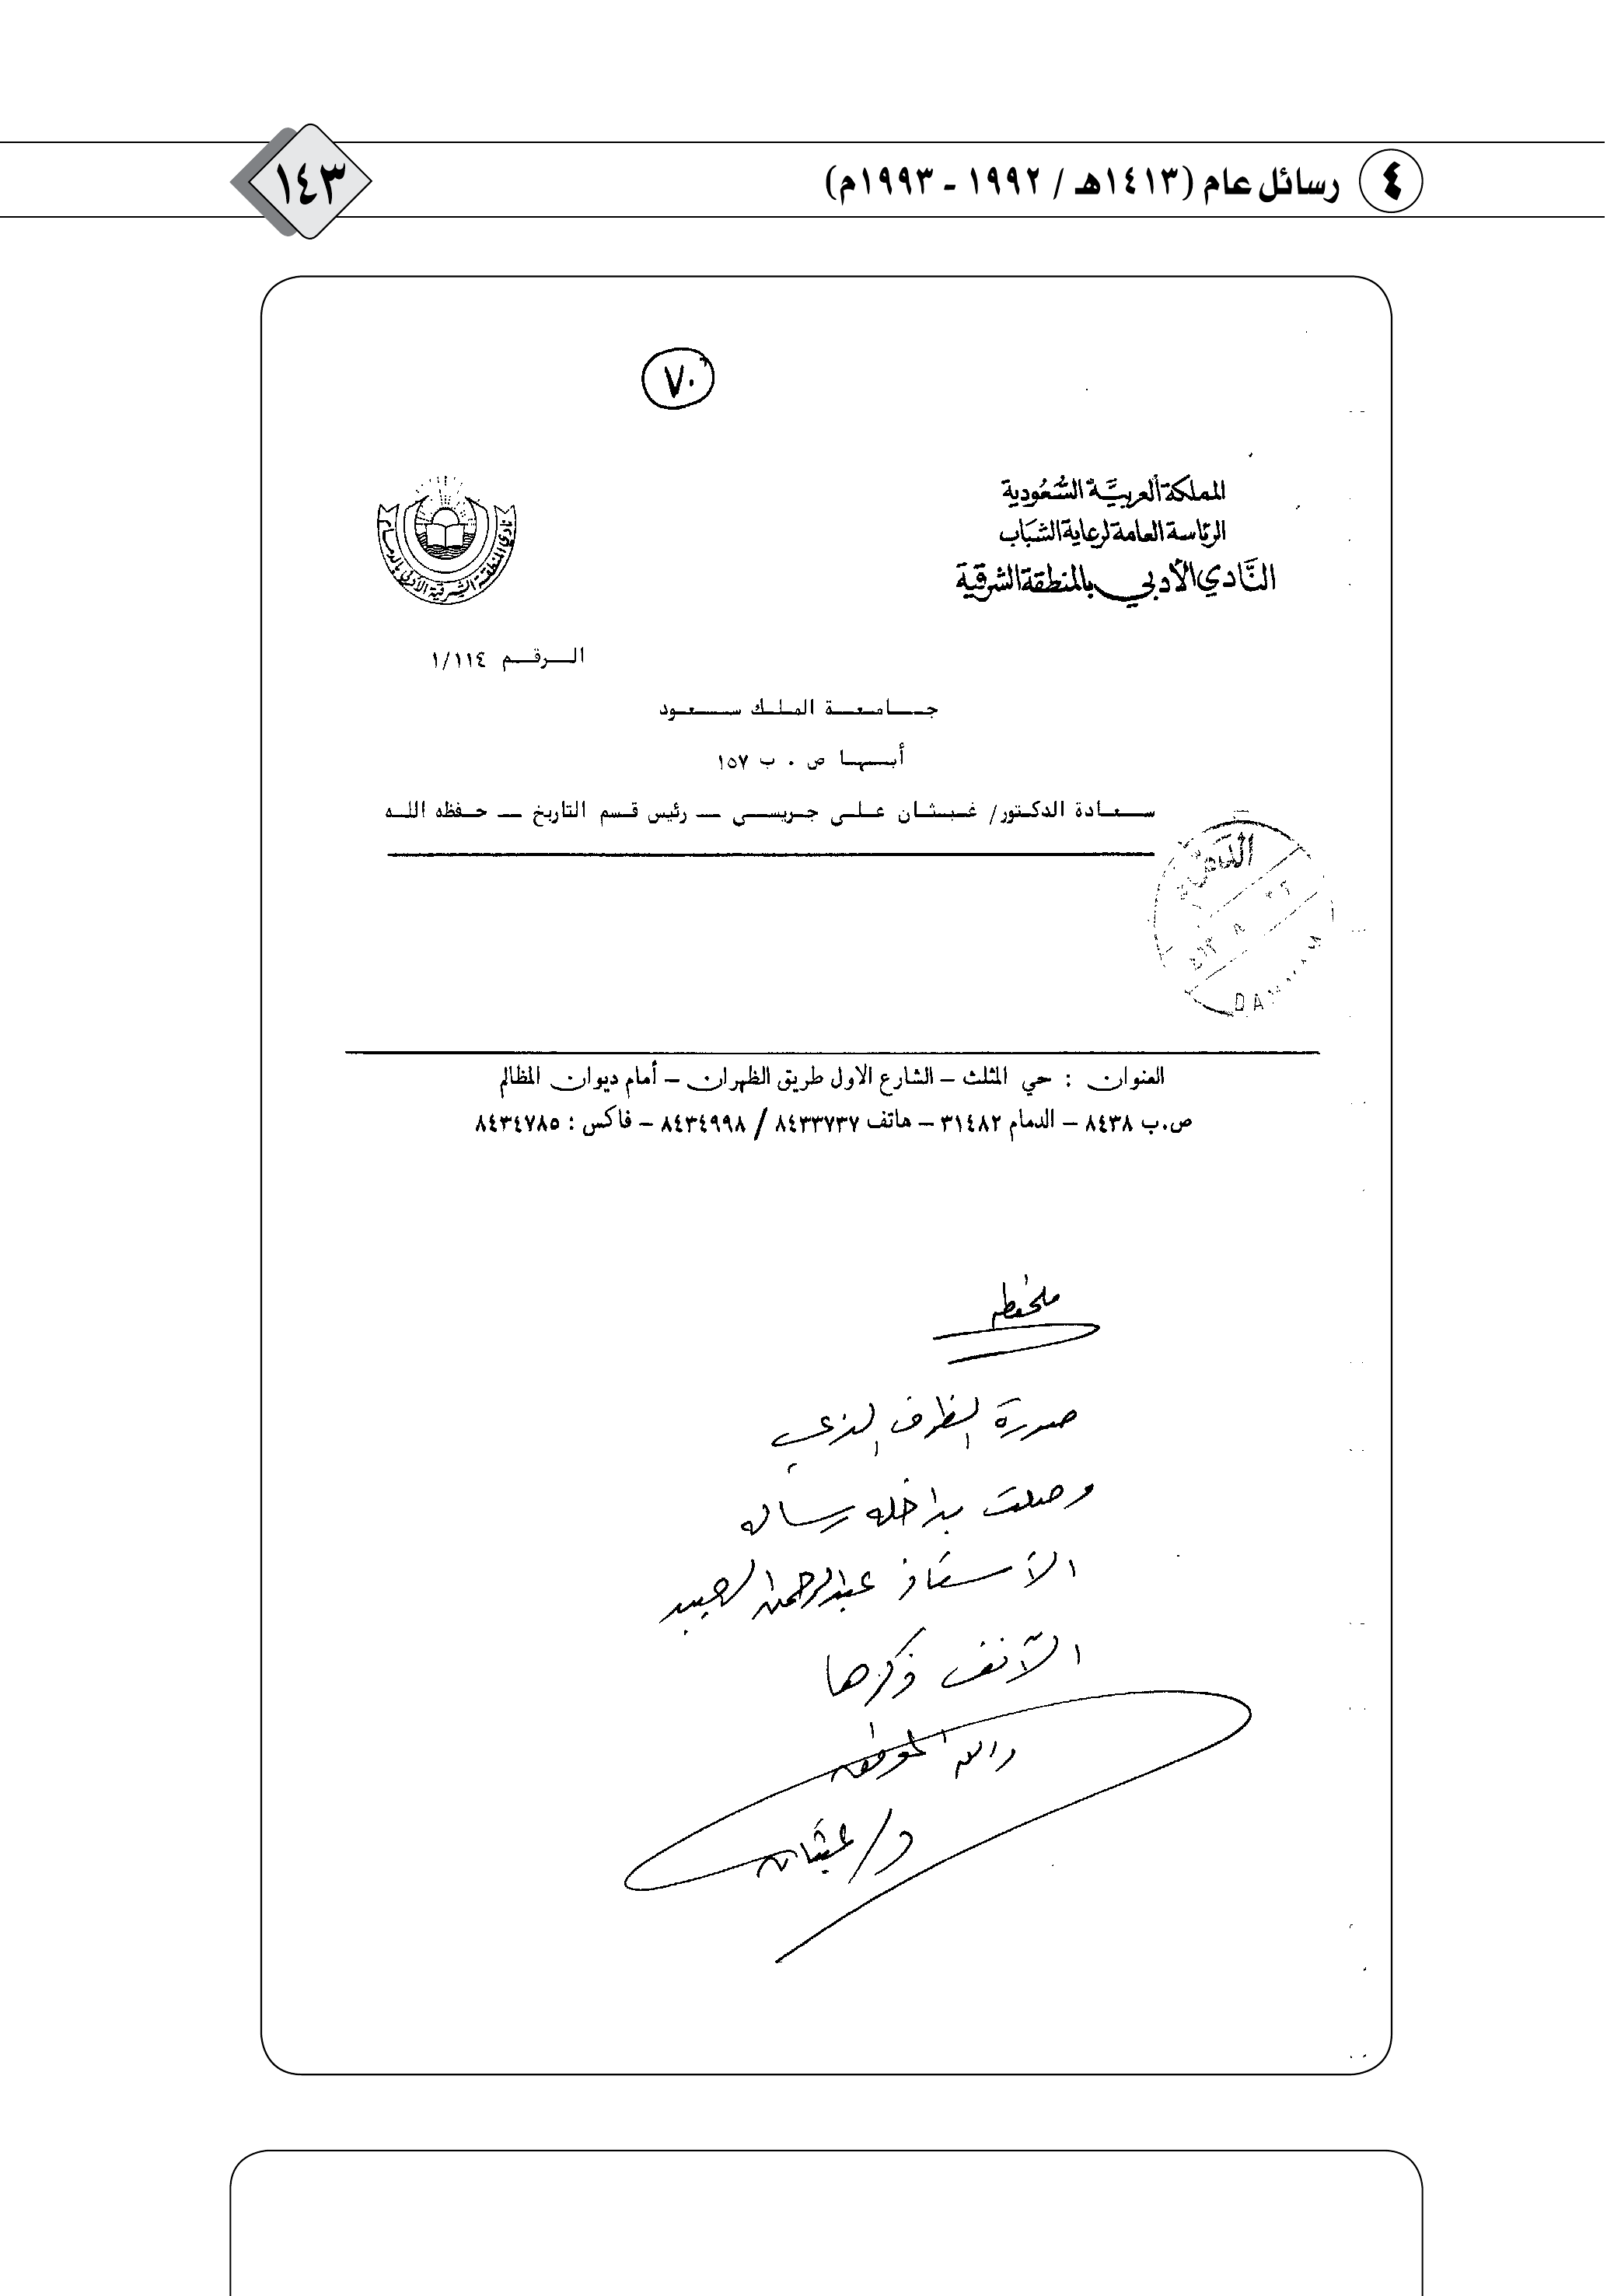 ٤ رسائل عام (١٤١٣هـ / ١٩٩٢ - ١٩٩٣م)
١٤٣
٧٠
المملكة العربية السعودية
الرئاسة العامة لرعاية الشباب
النادي الأدبي بالمنطقة الشرقية
نادي المنطقة الشرقية الأدبي بالدمام
الرقم ١/١١٤
جامعة الملك سعود
أبها ص . ب ١٥٧
سعادة الدكتور/ غبثان على جريسى — رئيس قسم التاريخ — حفظه الله
العنوان : حي المثلث – الشارع الاول طريق الظهران – أمام ديوان المظالم
ص.ب ٨٤٣٨ – الدمام ٣١٤٨٢ – هاتف ٨٤٣٣٧٣٧ / ٨٤٣٤٩٩٨ – فاكس : ٨٤٣٤٧٨٥
ملحظه
صورة الظرف الذي
وصلت بداخله رساله
الأستاذ عبدالرحمن العبيد
الآنف ذكرها
والله الموفق
د/ غيثان